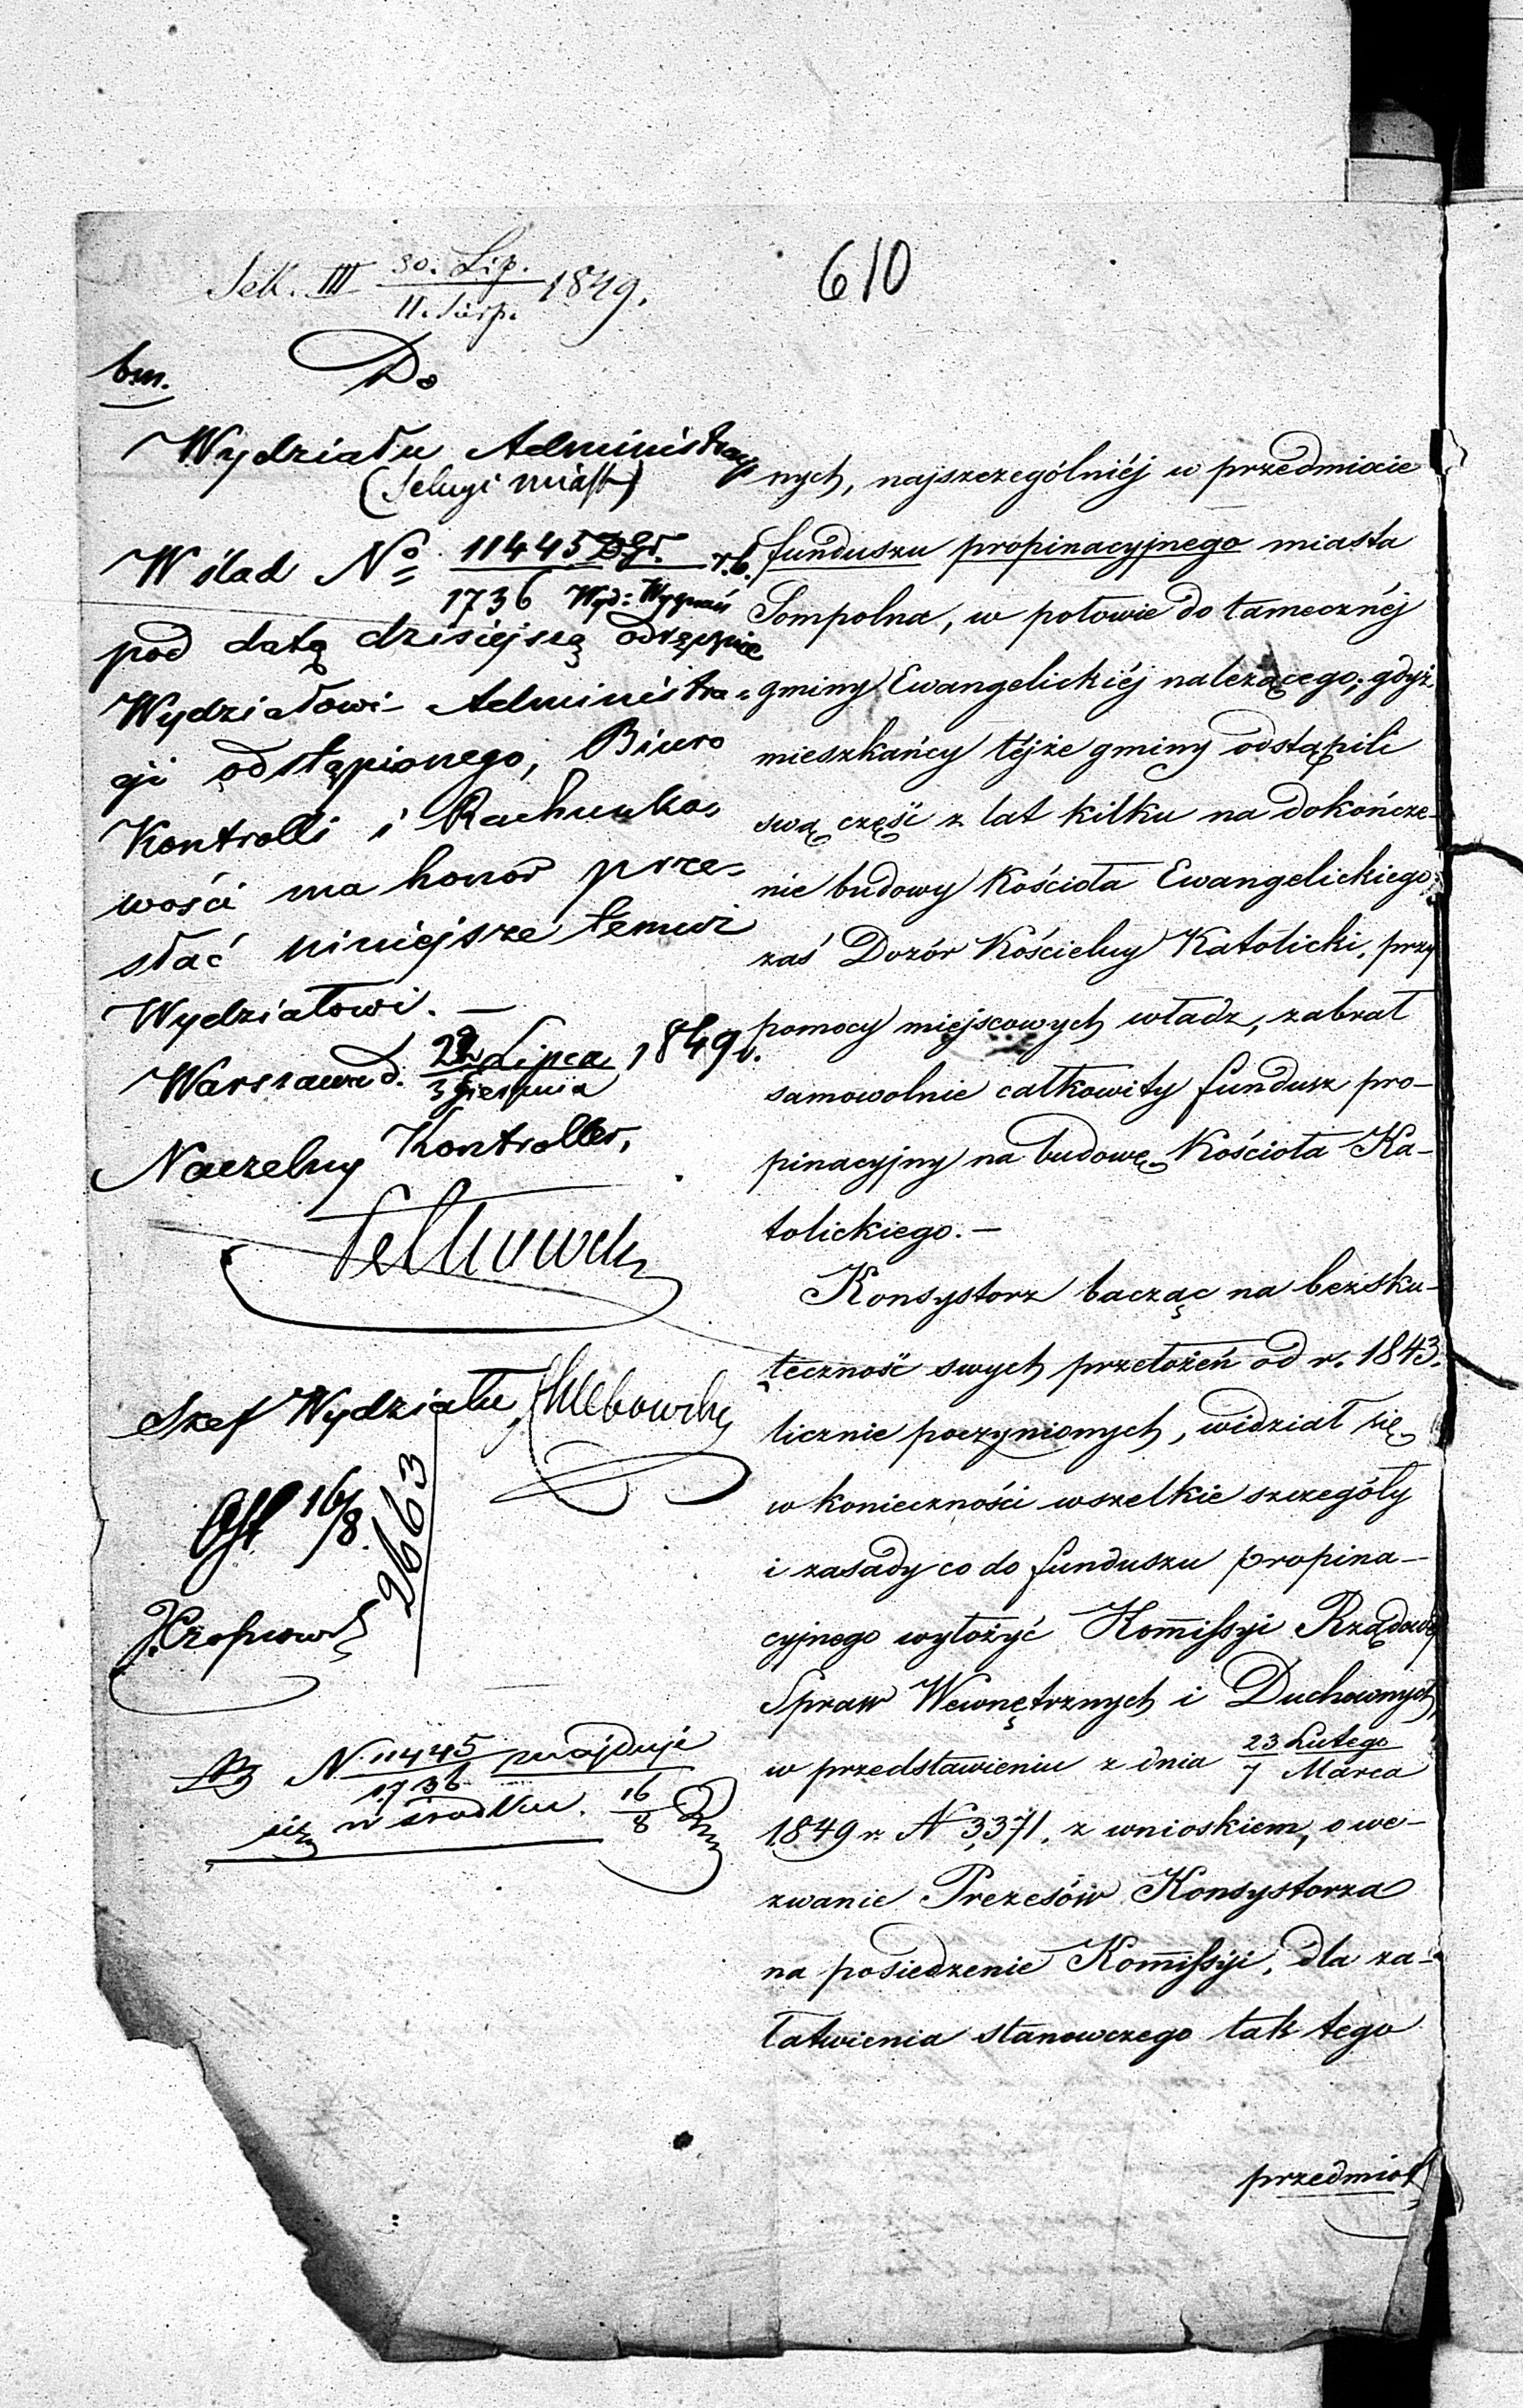 610
Sek. III 30. Lip. / 11. Sierp. 1849.
bm.
Do
Wydziału Administracyj
(Sekcyi miast)
W ślad No 11445 / 1736 r.b.
pod datą dzisiejszą odręcznie
Wydziałowi Administra=
cji odstąpionego, Biuro
Kontrolli i Rachunko=
wości ma honor prze=
słać niniejsze temuż
Wydziałowi. —
Warszawa d. 22 Lipca / 3 Sierpnia 1849 r.
Naczelny Kontroller,
Szef Wydziału
16/8.
2663
N. 11445 / 1736 znajduje
się w środku. 16/8
nych, najszczególniéj w przedmiocie
funduszu propinacyjnego miasta
Sompolna, w połowie do tamecznéj
gminy Ewangelickiéj należącego; gdyż
mieszkańcy téjże gminy odstąpili
swą część z lat kilku na dokończe-
nie budowy Kościoła Ewangelickiego;
zaś Dozór Kościelny Katolicki, przy
pomocy miejscowych władz, zabrał
samowolnie całkowity fundusz pro-
pinacyjny na budowę Kościoła Ka-
tolickiego. —
Konsystorz bacząc na bezsku-
teczność swych przełożeń od r. 1843.
licznie poczynionych, widział się
w konieczności wszelkie szczegóły
i zasady co do funduszu propina-
cyjnego wyłożyć Kommissyi Rządowéj
Spraw Wewnętrznych i Duchownych,
w przedstawieniu z dnia 23 Lutego / 7 Marca
1849 r. N 3,371. z wnioskiem, o we-
zwanie Prezesów Konsystorza
na posiedzenie Kommissyi, dla za-
łatwienia stanowczego tak tego
przedmiot